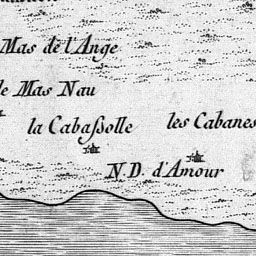 Mas de l'Ange
le Mas Nau
la Cabaſsolle
les Cabanes
N.D. d'Amour